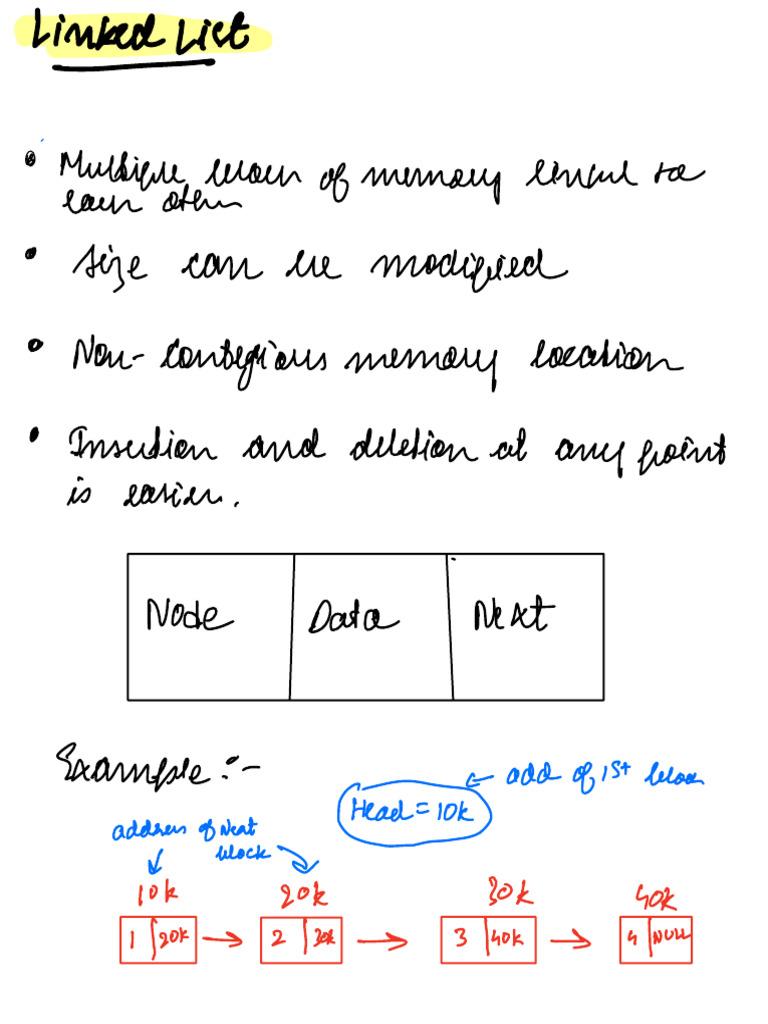 Linked List
• Multiple block of memory linked to
each other
• Size can be modified
• Non-contegious memory location
• Insertion and deletion at any point
is easier.
Node Data Next
Example :-
← add of 1st block
Head = 10k
address of Next
block
10k 20k 30k 40k
1 20k → 2 30k → 3 40k → 4 NULL